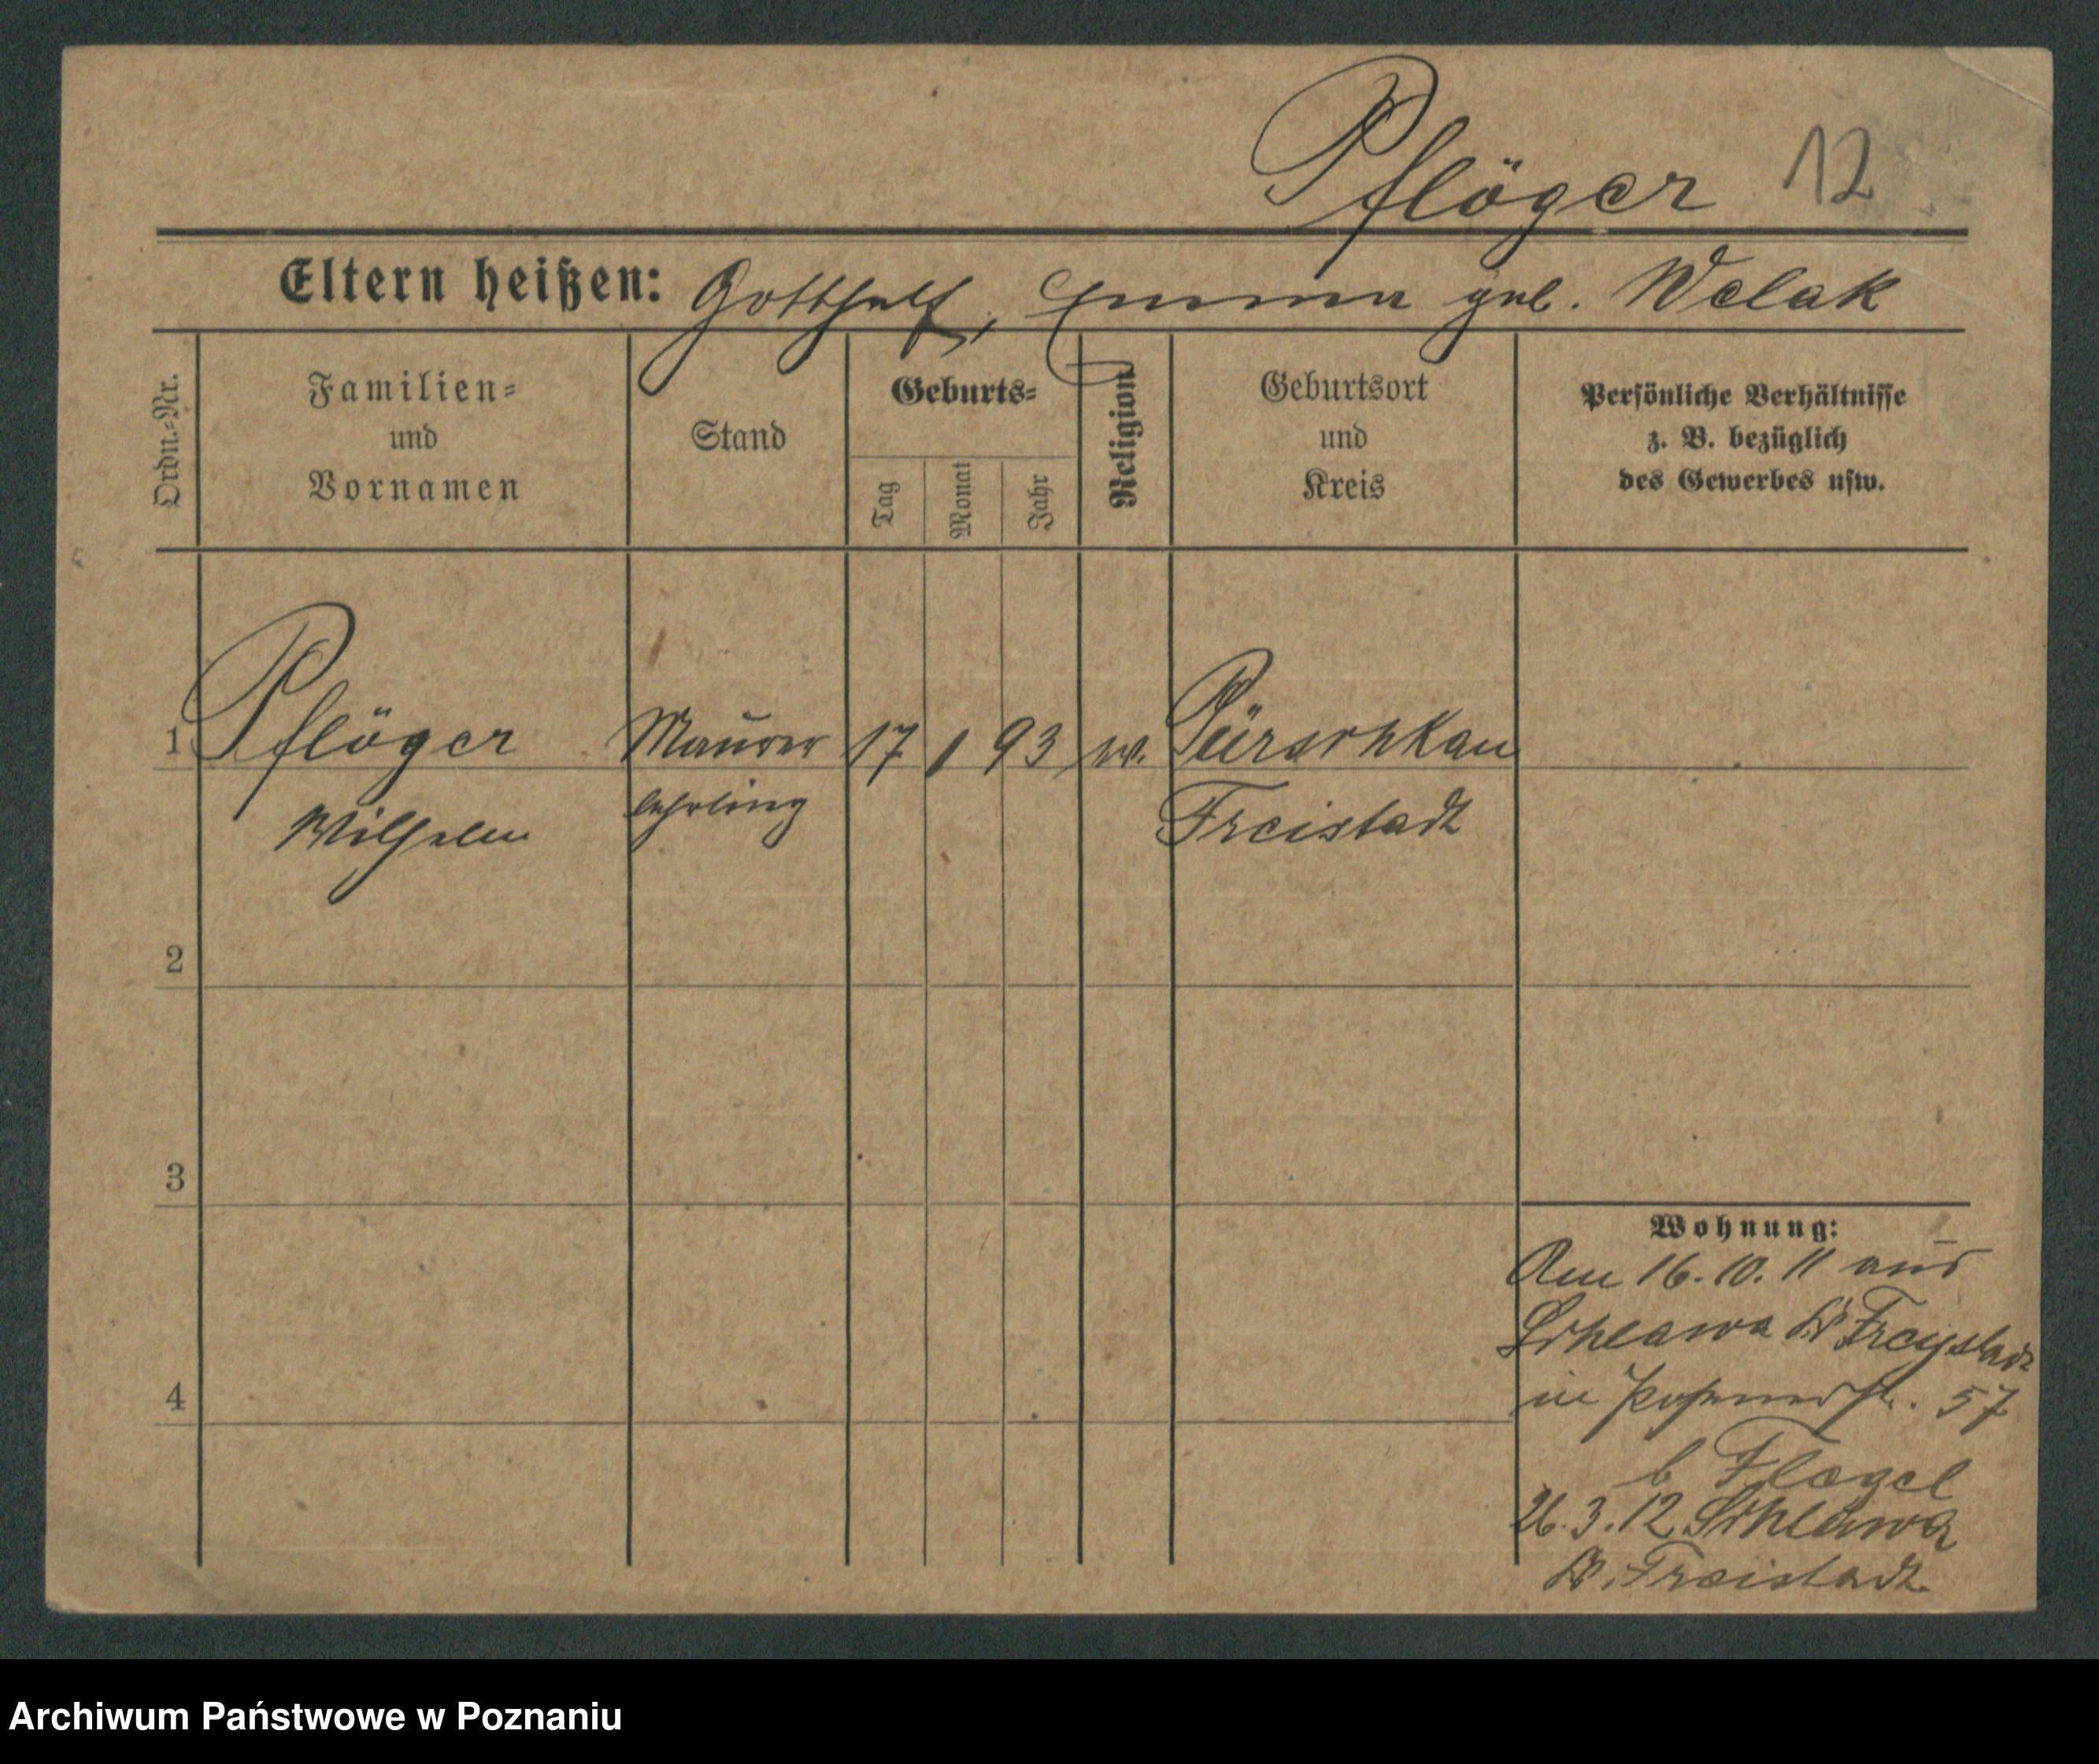 Pflöger 12
Eltern heißen: Gotthelf, Emma geb. Welak
Ordn.-Nr.
Familien-
und
Vornamen
Stand
Geburts-
Tag
Monat
Jahr
Religion
Geburtsort
und
Kreis
Persönliche Verhältnisse
z. B. bezüglich
des Gewerbes usw.
1 Pflöger Maurer 17 1 93 ev. Pürschkau
Wilhelm lehrling Freistadt
2
3
4
Wohnung:
Am 16.10.11 aus
Schlawa Kr Freystadt
in Posenerstr. 57
b Flögel
26.3.12 Schlawa
Kr. Freistadt
Archiwum Państwowe w Poznaniu